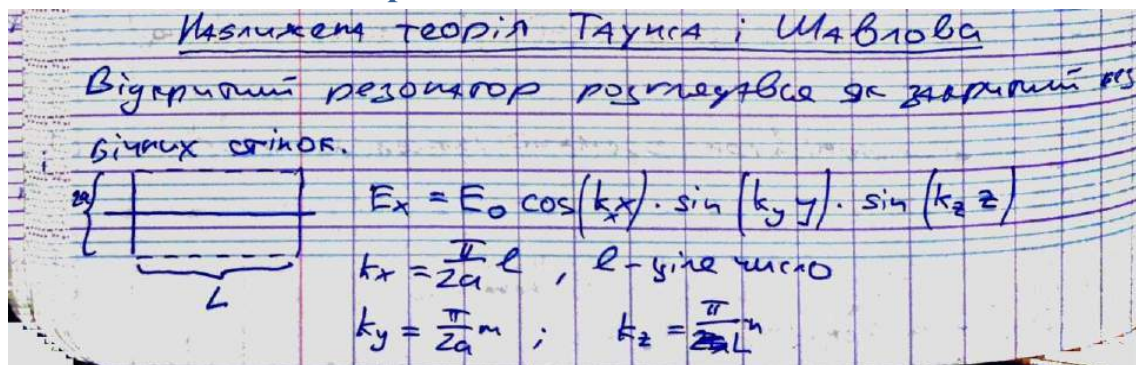 Наближена теорія Таунса і Шавлова
Відкритий резонатор розглядався як закритий без
бічних стінок.
2a
E_x = E_0 cos(k_x x) · sin(k_y y) · sin(k_z z)
k_x = π/2a l , l - ціле число
L
k_y = π/2a m ; k_z = π/L n